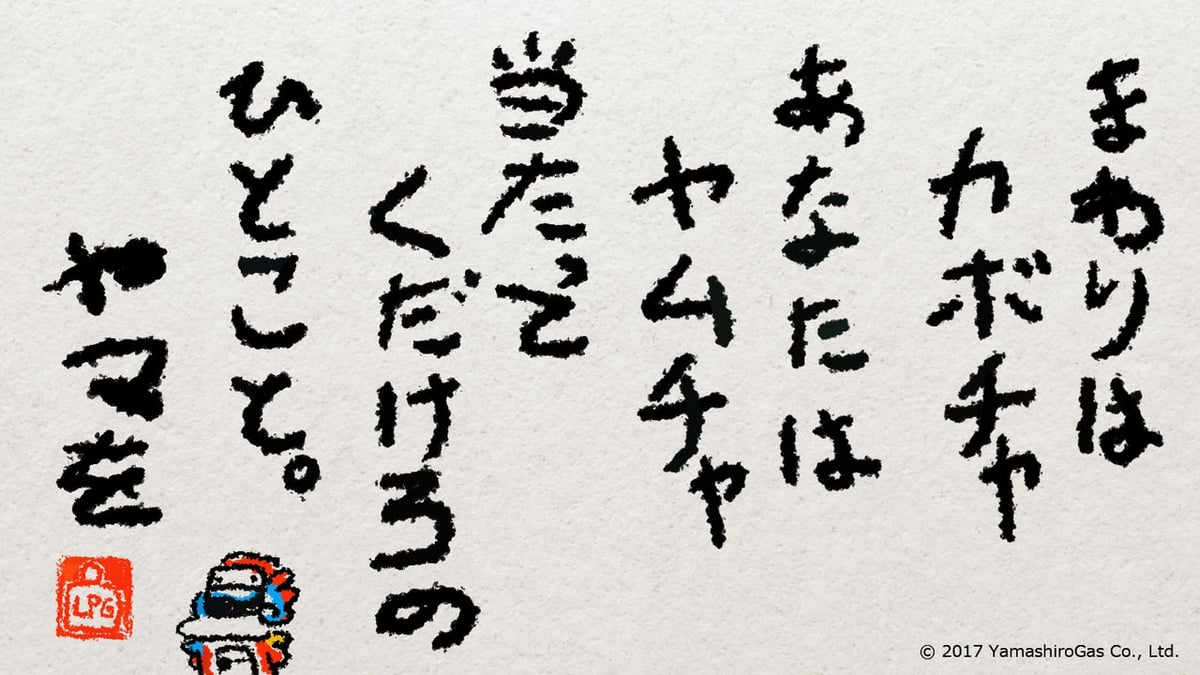 まわりは
カボチャ
あなたは
ヤムチャ
当たって
くだけろの
ひとこと。
LPG
© 2017 YamashiroGas Co., Ltd.